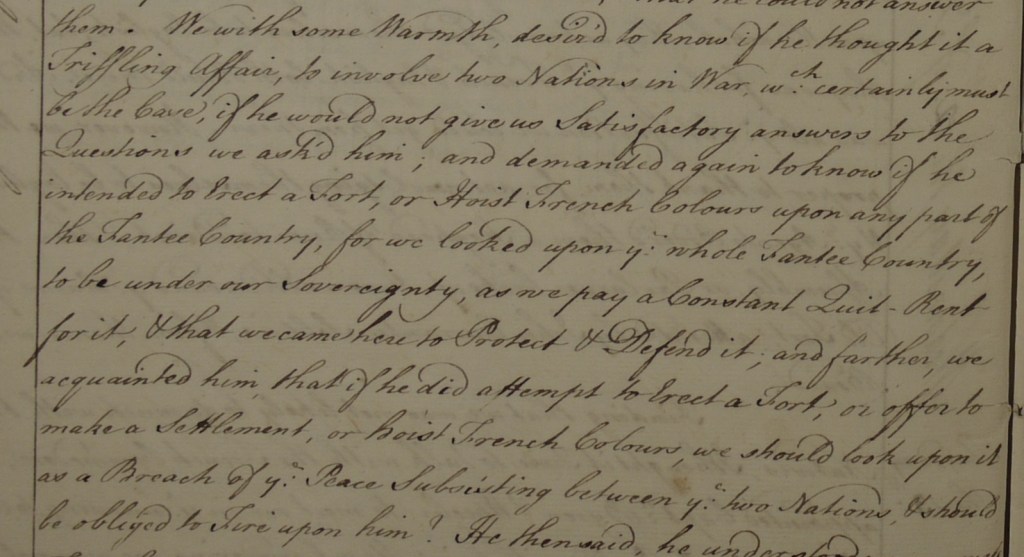 he could not answer
them. We with some Warmth, desir'd to know if he thought it a
Triffling Affair, to involve two Nations in War, w.ch certainly must
be the Case, if he would not give us Satisfactory answers to the
Questions we ask'd him; and demanded again to know if he
intended to Erect a Fort, or Hoist French Colours upon any part of
the Fantee Country, for we looked upon y.e whole Fantee Country,
to be under our Sovereignty, as we pay a Constant Quit-Rent
for it, & that we came here to Protect & Defend it; and farther, we
acquainted him, that if he did attempt to Erect a Fort, or offer to
make a Settlement, or hoist French Colours, we should look upon it
as a Breach of y.e Peace Subsisting between y.e two Nations, & should
be obliged to Fire upon him? He then said, he